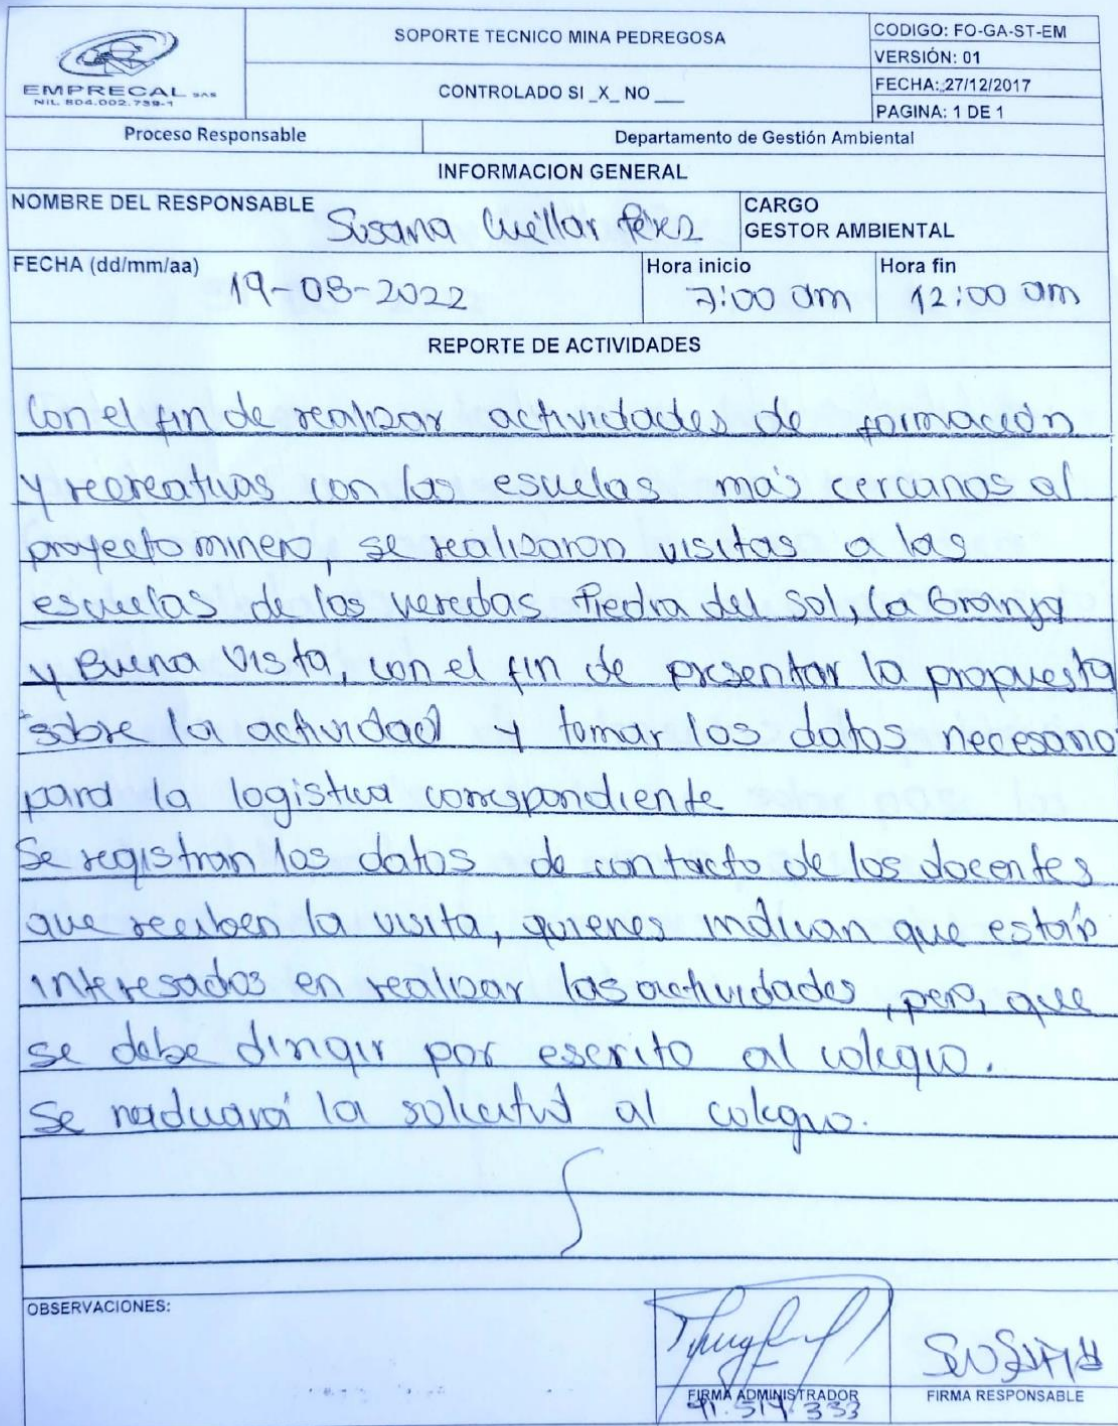 EMPRECAL SAS
NIL. 804.002.739-1
SOPORTE TECNICO MINA PEDREGOSA
CONTROLADO SI _X_ NO ___
CODIGO: FO-GA-ST-EM
VERSIÓN: 01
FECHA: 27/12/2017
PAGINA: 1 DE 1
Proceso Responsable
Departamento de Gestión Ambiental
INFORMACION GENERAL
NOMBRE DEL RESPONSABLE
Susana Cuéllar Pérez
CARGO
GESTOR AMBIENTAL
FECHA (dd/mm/aa)
19-08-2022
Hora inicio
7:00 am
Hora fin
12:00 am
REPORTE DE ACTIVIDADES
Con el fin de realizar actividades de formación
y recreativas con las escuelas más cercanas al
proyecto minero, se realizaron visitas a las
escuelas de las veredas Piedra del sol, La Granja
y Buena Vista, con el fin de presentar la propuesta
sobre la actividad y tomar los datos necesario
para la logistica correspondiente
Se registran los datos de contacto de los docentes
que reciben la visita, quienes indican que están
interesados en realizar las actividades, pero, que
se debe dirigir por escrito al colegio.
Se radicará la solicitud al colegio.
OBSERVACIONES:
FIRMA ADMINISTRADOR
91.519.333
SUSANA
FIRMA RESPONSABLE